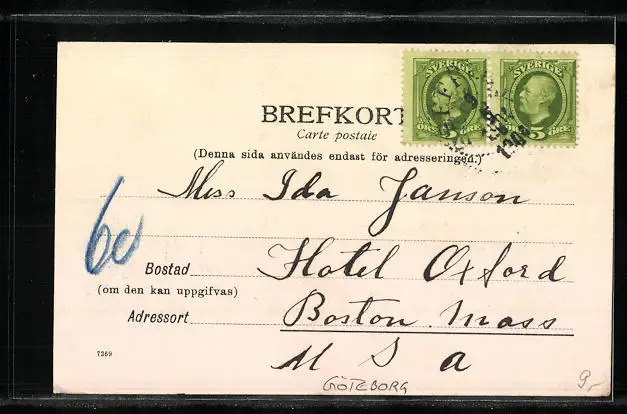 SVERIGE SVERIGE
ÖRE 5 ÖRE 5 ÖRE
BREFKORT
Carte postale
(Denna sida användes endast för adresseringen.)
Miss Ida Janson
60
Hotel Oxford
Bostad
(om den kan uppgifvas)
Adressort
Boston. Mass
U S a
7269
GÖTEBORG
9,-